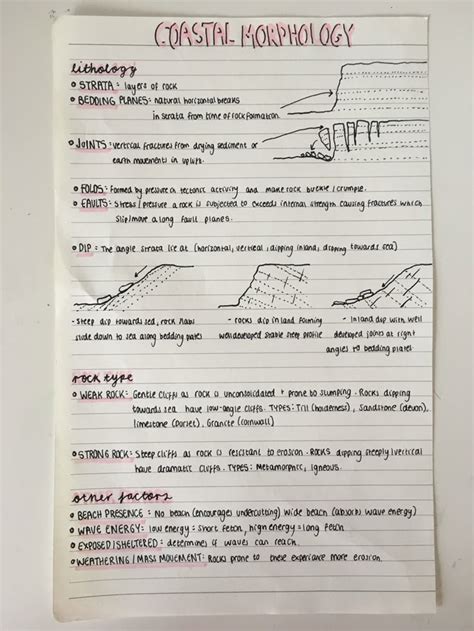 COASTAL MORPHOLOGY
lithology
• STRATA = layers of rock
• BEDDING PLANES: natural horizontal breaks
in strata from time of rock formation.
• JOINTS: vertical fractures from drying sediment or
earth movements in uplift.
• FOLDS: Formed by pressure in tectonic activity and make rock buckle / crumple.
• FAULTS: Stress / pressure a rock is subjected to exceeds internal strength causing fractures which
slip/move along fault planes.
• DIP: The angle strata lie at (horizontal, vertical, dipping inland, dipping towards sea)
- steep dip towards sea, rock slabs
slide down to sea along bedding plates
- rocks dip inland forming
well developed stable steep profile
- inland dip with well
developed joints at right
angles to bedding planes
rock type
• WEAK ROCK: Gentle cliffs as rock is unconsolidated + prone to slumping. Rocks dipping
towards sea have low-angle cliffs. TYPES: Till (holderness), Sandstone (devon),
limestone (Dorset), Granite (cornwall)
• STRONG ROCK: Steep cliffs as rock is resistant to erosion. Rocks dipping steeply/vertical
have dramatic cliffs. TYPES: Metamorphic, igneous.
other factors
• BEACH PRESENCE: No beach (encourages undercutting) wide beach (absorbs wave energy)
• WAVE ENERGY: low energy = short fetch, high energy = long fetch
• EXPOSED/SHELTERED: determines if waves can reach.
• WEATHERING / MASS MOVEMENT: Rocks prone to these experience more erosion.